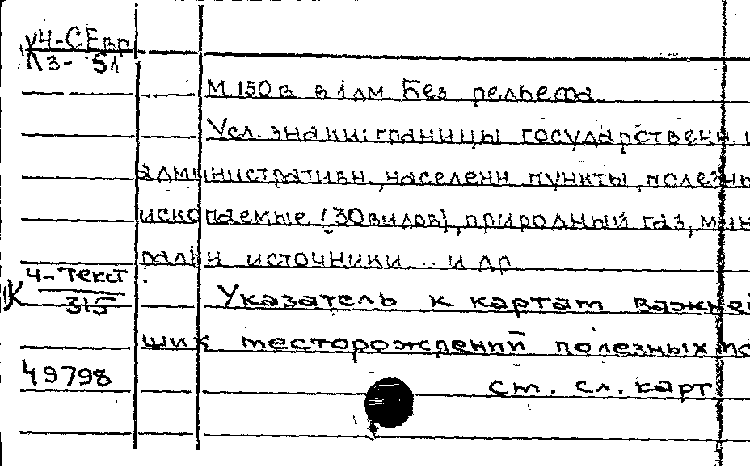 У4-СЕвр
Л3- 51
М 150 в в 1 дм Без рельефа
Усл. знаки: границы государственн
административн, населенн пункты, полезны
ископаемые (30 видов), природный газ, мин
ральн источники... и др
4-текст
315
Указатель к картам важней
ших месторождений полезных по
49798
ст. сл. карт